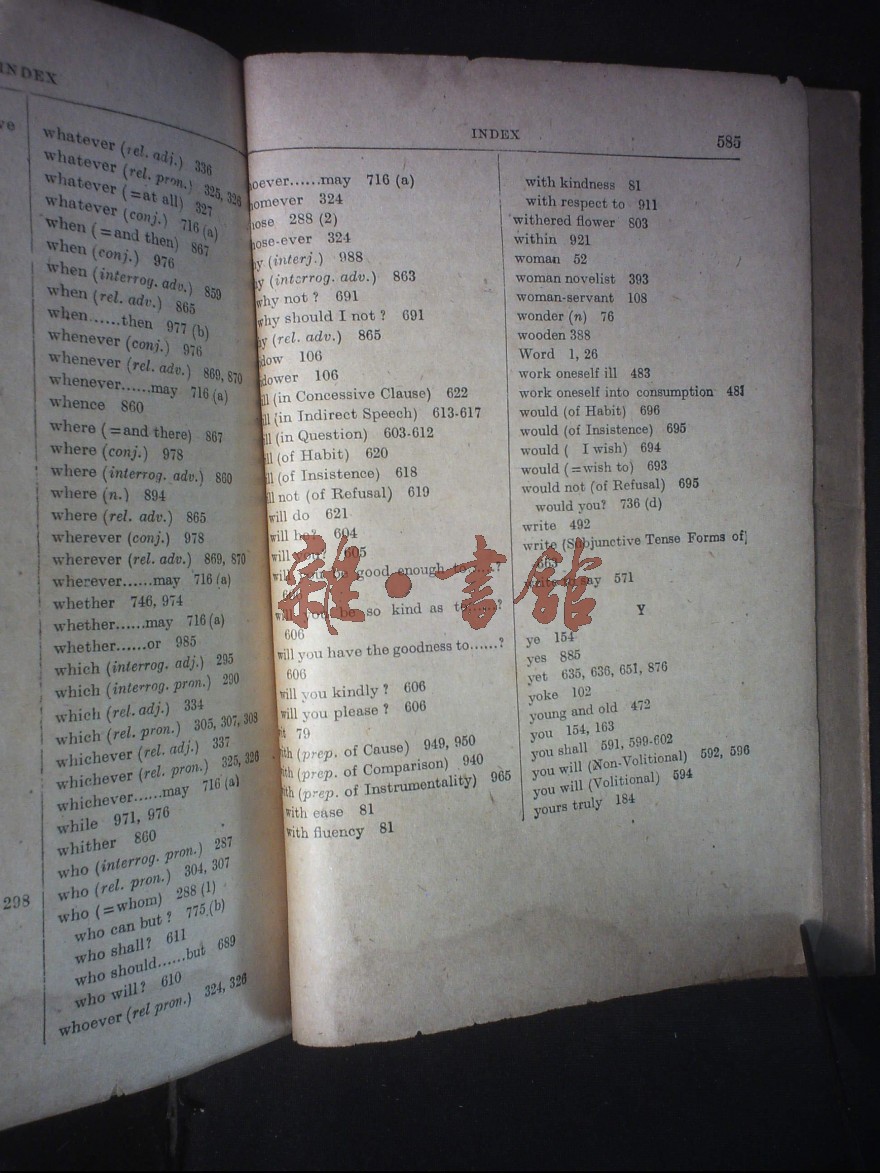 INDEX
298
whatever (rel. adj.) 336
whatever (rel. pron.) 325, 326
whatever (=at all) 327
whatever (conj.) 716 (a)
when (=and then) 867
when (conj.) 976
when (interrog. adv.) 859
when (rel. adv.) 865
when......then 977 (b)
whenever (conj.) 976
whenever (rel. adv.) 869, 870
whenever......may 716 (a)
whence 860
where (=and there) 867
where (conj.) 978
where (interrog. adv.) 860
where (n.) 894
where (rel. adv.) 865
wherever (conj.) 978
wherever (rel. adv.) 869, 870
wherever......may 716 (a)
whether 746, 974
whether......may 716 (a)
whether......or 985
which (interrog. adj.) 295
which (interrog. pron.) 290
which (rel. adj.) 334
which (rel. pron.) 305, 307, 308
whichever (rel. adj.) 337
whichever (rel. pron.) 325, 326
whichever......may 716 (a)
while 971, 976
whither 860
who (interrog. pron.) 287
who (rel. pron.) 304, 307
who (=whom) 288 (1)
who can but ? 775 (b)
who shall? 611
who should......but 689
who will? 610
whoever (rel pron.) 324, 326
INDEX
585
oever......may 716 (a)
omever 324
ose 288 (2)
ose-ever 324
y (interj.) 988
y (interrog. adv.) 863
why not ? 691
why should I not ? 691
y (rel. adv.) 865
dow 106
dower 106
ll (in Concessive Clause) 622
ll (in Indirect Speech) 613-617
ll (in Question) 603-612
ll (of Habit) 620
ll (of Insistence) 618
ll not (of Refusal) 619
will do 621
will he? 604
will 605
will you be good enough to......?
will you be so kind as to......?
606
will you have the goodness to......?
606
will you kindly ? 606
will you please ? 606
it 79
ith (prep. of Cause) 949, 950
ith (prep. of Comparison) 940
ith (prep. of Instrumentality) 965
with ease 81
with fluency 81
with kindness 81
with respect to 911
withered flower 803
within 921
woman 52
woman novelist 393
woman-servant 108
wonder (n) 76
wooden 388
Word 1, 26
work oneself ill 483
work oneself into consumption 481
would (of Habit) 696
would (of Insistence) 695
would ( I wish) 694
would (=wish to) 693
would not (of Refusal) 695
would you? 736 (d)
write 492
write (Subjunctive Tense Forms of)
663
write to say 571
Y
ye 154
yes 885
yet 635, 636, 651, 876
yoke 102
young and old 472
you 154, 163
you shall 591, 599-602
you will (Non-Volitional) 592, 596
you will (Volitional) 594
yours truly 184
雜·書館